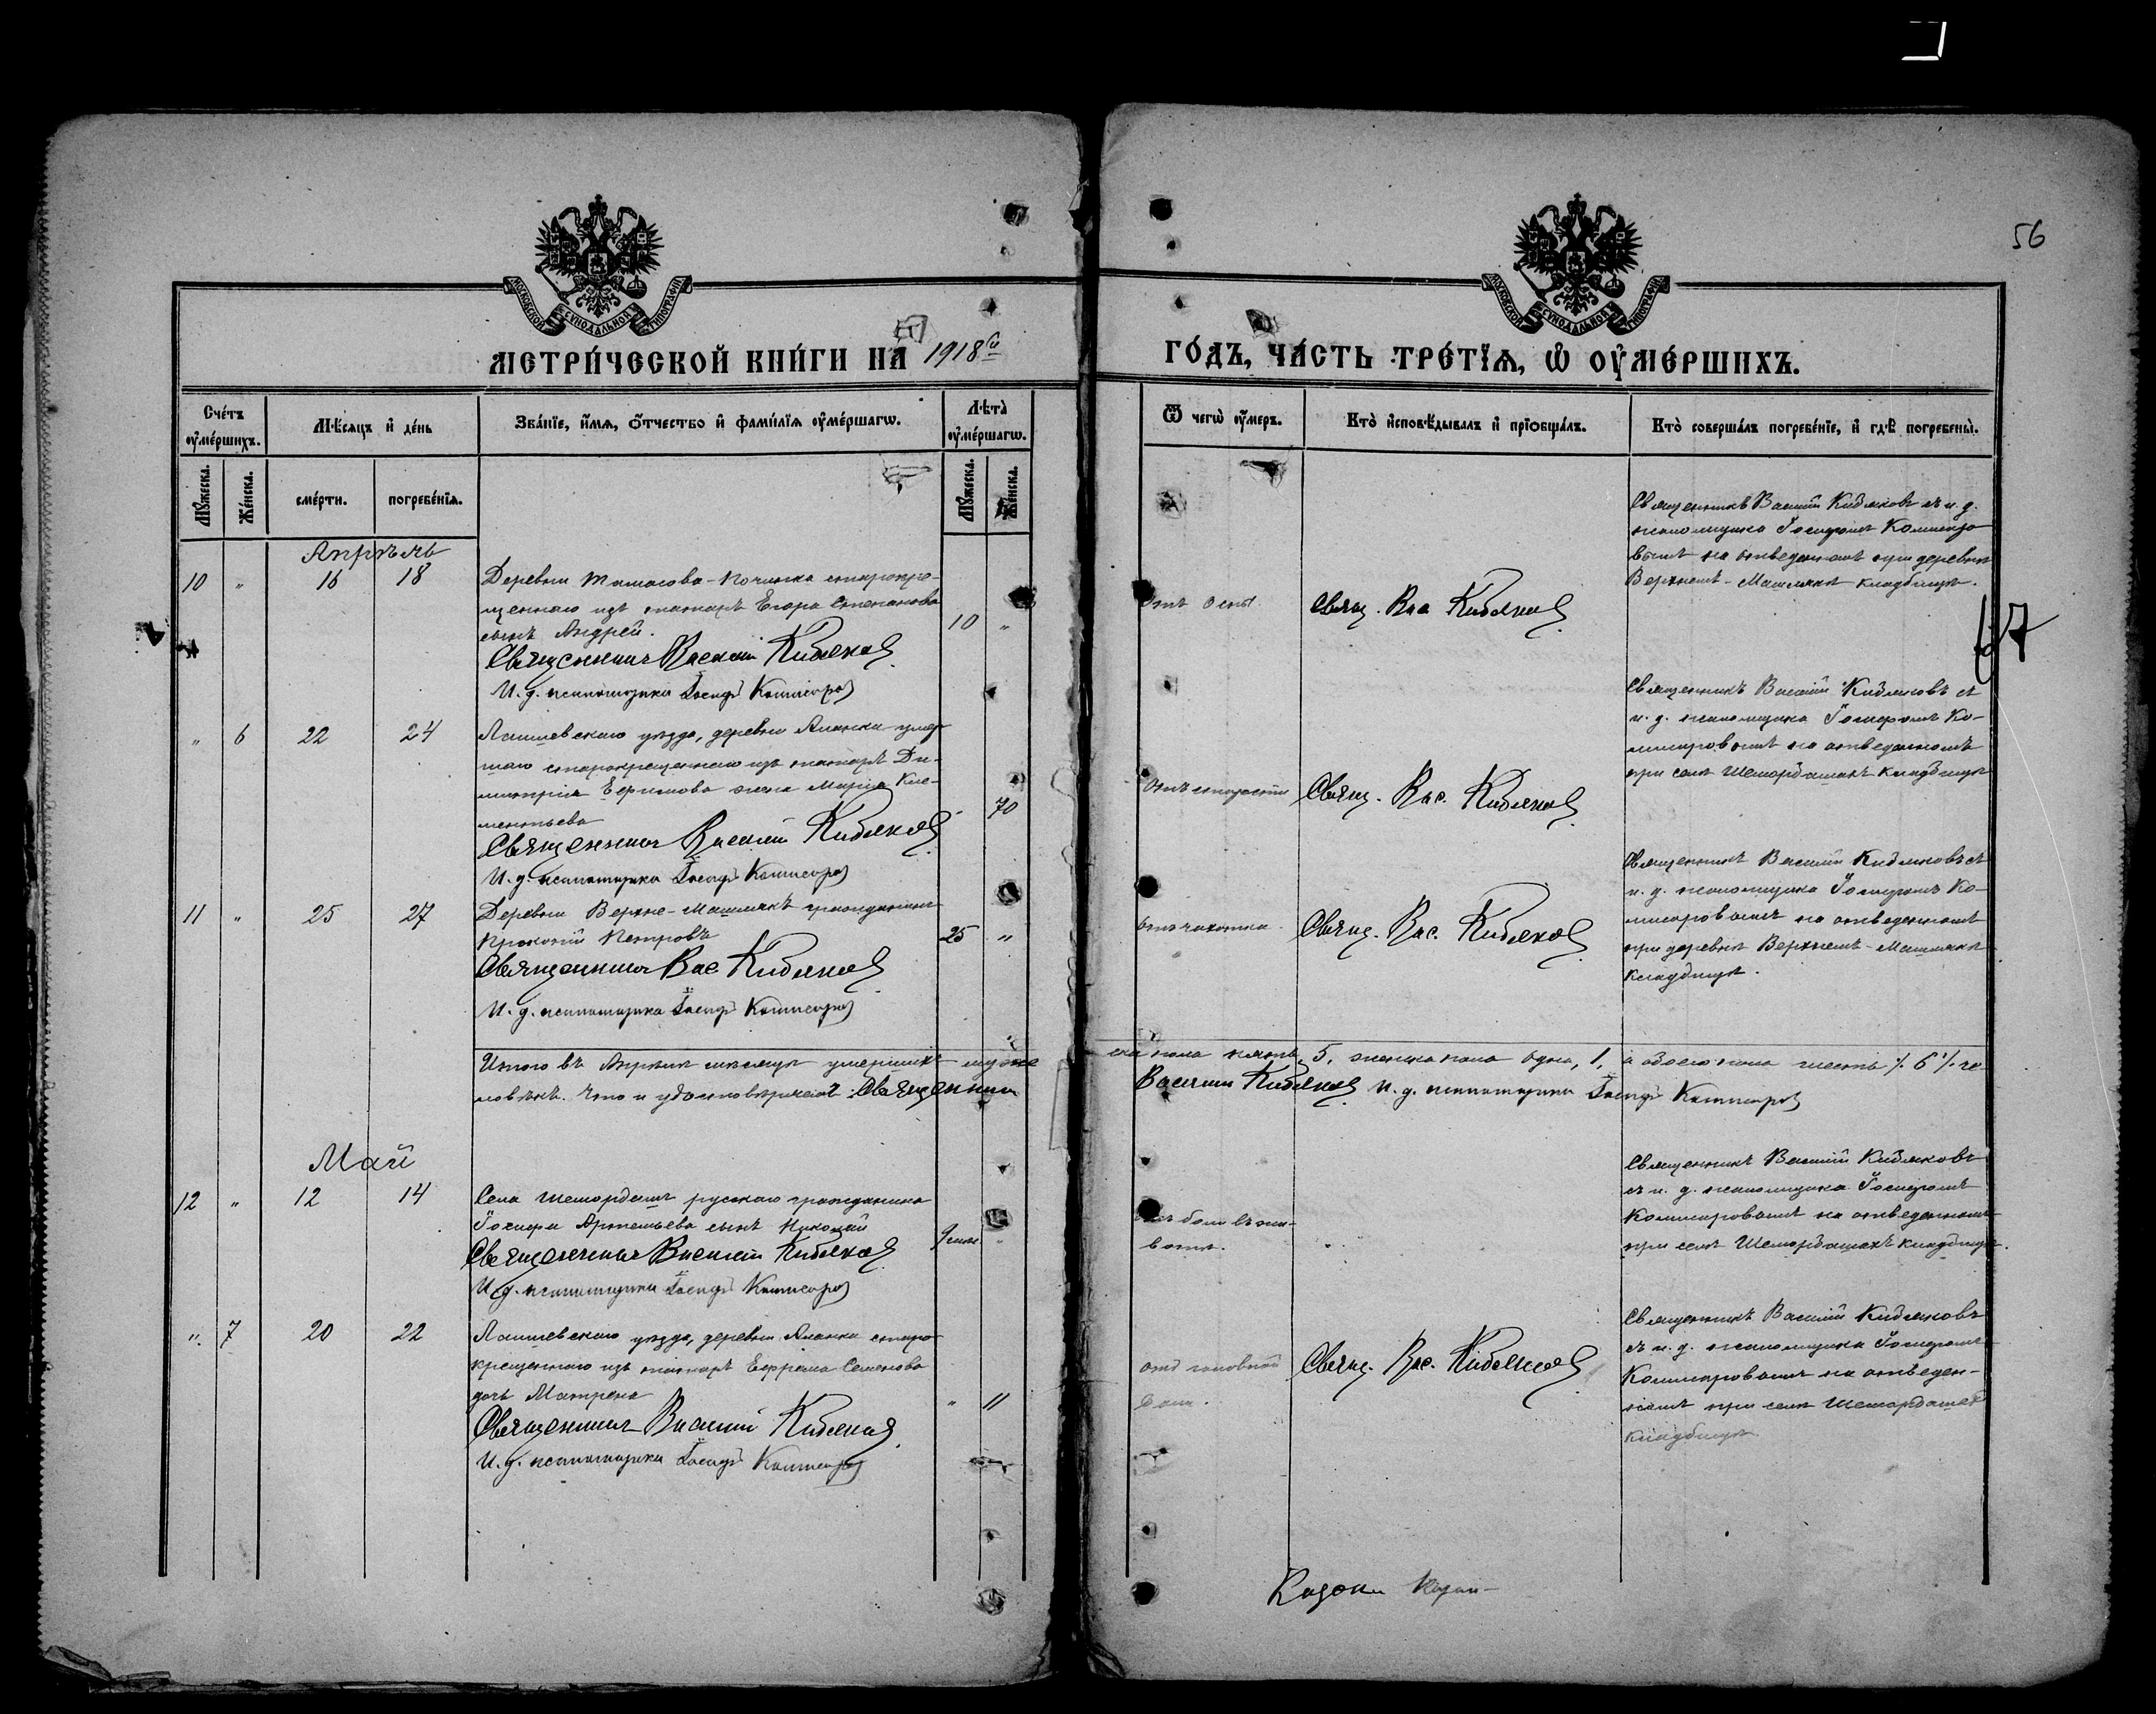 56
МОСКОВСКОЙ СУНОДАЛЬНОЙ ТИПОГРАФІИ
МОСКОВСКОЙ СУНОДАЛЬНОЙ ТИПОГРАФІИ
МЕТРИ́ЧЕСКОЙ КНИ́ГИ НА 1918й
ГО́ДЪ, ЧА́СТЬ ТРЕ́ТЇѦ, Ѡ҆ ОУ҆МЕ́РШИХЪ.
Сче́тъ оу҆ме́ршихъ.
Мѣ́сѧцъ и҆ де́нь
Зва́нїе, и҆́мѧ, ѻ҆́тчество и҆ фами́лїѧ оу҆ме́ршагѡ.
Лѣ́та оу҆ме́ршагѡ.
Ѿ чегѡ̀ оу҆́меръ.
Кто̀ и҆сповѣ́дывалъ и҆ прїѡбща́лъ.
Кто̀ соверша́лъ погребе́нїе, и҆ гдѣ̀ погребены̀.
Мꙋ́жеска.
Же́нска.
сме́рти.
погребе́нїѧ.
Мꙋ́жеска.
Же́нска.
Апрѣль
10 " 16 18
Деревни Починка старокре-
щеннаго изъ татаръ Егора Степанова
сынъ Андрей.
10 "
Священникъ Василій Кибяковъ
И. д. псаломщика Іосифъ Комисаровъ
Отъ оспы.
Свящ. Вас. Кибяковъ
Священникъ Василій Кибяковъ съ и. д.
псаломщика Іосифомъ Комисаро
вымъ на отведенномъ при деревнѣ
Верхнемъ-Машлякѣ кладбищѣ.
67
" 6 22 24
Лаишевскаго уѣзда, деревни Янанки умер
шаго старокрещеннаго изъ татаръ Ди-
митрія Ефимова жена Марія Кле-
ментьева
70
Священникъ Василій Кибяковъ
И. д. псаломщика Іосифъ Комисаровъ
Отъ старости
Свящ. Вас. Кибяковъ
Священникъ Василій Кибяковъ съ
и. д. псаломщика Іосифомъ Ко-
мисаровымъ на отведенномъ
при селѣ Шемордашахъ кладбищѣ
11 " 25 27
Деревни Верхне-Машлякъ гражданинъ
Прокопій Петровъ
25 "
Священникъ Вас Кибяковъ
И. д. псаломщика Іосифъ Комисаровъ
Отъ чахотки.
Свящ. Вас. Кибяковъ
Священникъ Василій Кибяковъ съ
и. д. псаломщика Іосифомъ Ко-
мисаровымъ на отведенномъ
при деревнѣ Верхнемъ-Машлякѣ
кладбищѣ.
Итого въ Апрѣлѣ мѣсяцѣ умершихъ муже
ска пола пять, 5, женска пола одна, 1, а обоего пола шесть ./. 6 ./. че
ловѣкъ. Что и удостовѣряемъ: Священникъ
Василій Кибяковъ И. д. псаломщика Іосифъ Комисаровъ
Май
12 " 12 14
Села Шемордашъ русскаго гражданина
Іосифа Артемьева сынъ Николай
Священникъ Василій Кибяковъ
И. д. псаломщика Іосифъ Комисаровъ
Отъ боли въ жи-
вотѣ.
Священникъ Василій Кибяковъ
съ и. д. псаломщика Іосифомъ
Комисаровымъ на отведенномъ
при селѣ Шемордашахъ кладбищѣ.
" 7 20 22
Лаишевскаго уѣзда, деревни Янанки старо
крещеннаго изъ татаръ Ефрема Семенова
дочь Матрена
" 11
Священникъ Василій Кибяковъ
И. д. псаломщика Іосифъ Комисаровъ
отъ головной
боли.
Свящ. Вас. Кибяковъ
Священникъ Василій Кибяковъ
съ и. д. псаломщика Іосифомъ
Комисаровымъ на отведен-
номъ при селѣ Шемордашахъ
кладбищѣ.